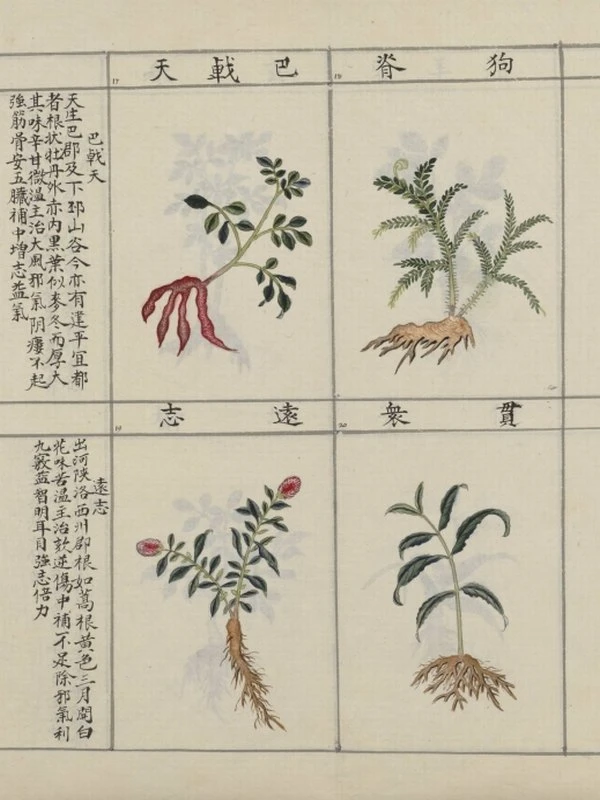 狗脊
巴戟天
17
巴戟天
天生巴郡及下邳山谷今亦有建平宜都
者根状牡丹外赤内黒葉似麥冬而厚大
其味辛甘微温主治大風邪氣阴痿不起
強筋骨安五臓補中增志益氣
貫衆
20
遠志
19
遠志
出河陝洛西州郡根如蒿根黄色三月開白
花味苦温主治欬逆傷中補不足除邪氣利
九竅益智明耳目強志倍力